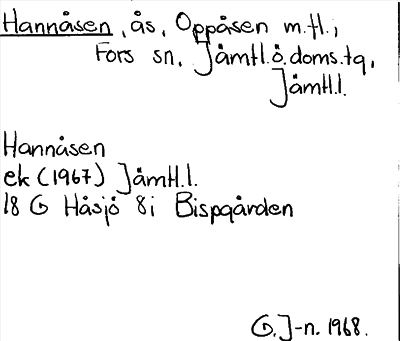 Hannåsen, ås, Oppåsen m.fl.;
Fors sn, Jämtl.ö.doms.tg,
Jämtl.l.
Hannåsen
ek (1967) Jämtl.l.
18 G Håsjö 8i Bispgården
G.J-n. 1968.